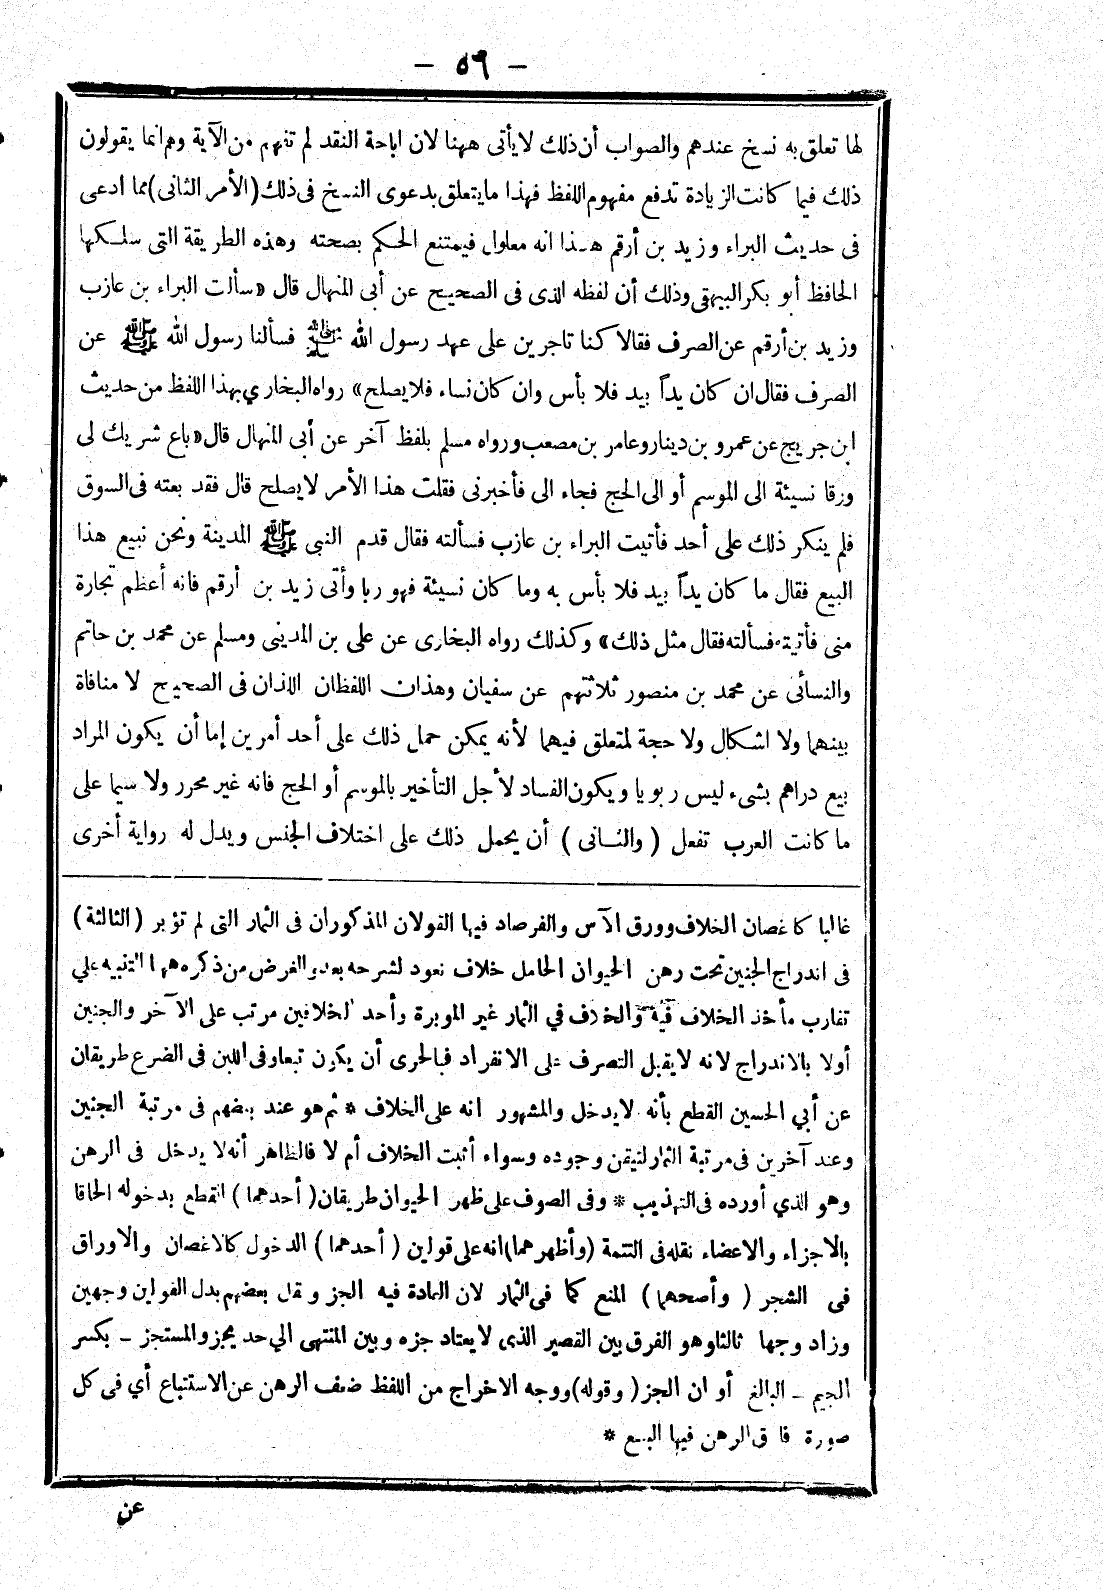 — ٥٩ —
لها تعلق به نسخ عندهم والصواب أن ذلك لا يأتى ههنا لان اباحة النقد لم تفهم من الآية وهم انما يقولون
ذلك فيما كانت الزيادة تدفع مفهوم اللفظ فهذا ما يتعلق بدعوى النسخ فى ذلك (الأمر الثانى) مما ادعى
فى حديث البراء وزيد بن أرقم هذا انه معلول فيمتنع الحكم بصحته وهذه الطريقة التى سلكها
الحافظ أبو بكر البيهقى وذلك أن لفظه الذى فى الصحيح عن أبى المنهال قال « سألت البراء بن عازب
وزيد بن أرقم عن الصرف فقالا كنا تاجرين على عهد رسول الله ﷺ فسألنا رسول الله ﷺ عن
الصرف فقال ان كان يداً بيد فلا بأس وان كان نساء فلا يصلح » رواه البخاري بهذا اللفظ من حديث
ابن جريج عن عمرو بن دينار وعامر بن مصعب ورواه مسلم بلفظ آخر عن أبى المنهال قال « باع شريك لى
ورقا نسيئة الى الموسم أو الى الحج فجاء الى فأخبرنى فقلت هذا الأمر لا يصلح قال فقد بعته فى السوق
فلم ينكر ذلك على أحد فأتيت البراء بن عازب فسألته فقال قدم النبى ﷺ المدينة ونحن نبيع هذا
البيع فقال ما كان يداً بيد فلا بأس به وما كان نسيئة فهو ربا وأتى زيد بن أرقم فانه أعظم تجارة
منى فأتيته فسألته فقال مثل ذلك » وكذلك رواه البخارى عن على بن المدينى ومسلم عن محمد بن حاتم
والنسائى عن محمد بن منصور ثلاثتهم عن سفيان وهذان اللفظان اللذان فى الصحيح لا منافاة
بينهما ولا اشكال ولا حجة لمتعلق فيهما لأنه يمكن حمل ذلك على أحد أمرين إما أن يكون المراد
بيع دراهم بشىء ليس ربويا ويكون الفساد لأجل التأخير بالموسم أو الحج فانه غير محرر ولا سيما على
ما كانت العرب تفعل (والثانى) أن يحمل ذلك على اختلاف الجنس ويدل له رواية أخرى
غالبا كاغصان الخلاف وورق الآس والفرصاد فيها القولان المذكوران فى الثمار التى لم تؤبر (الثالثة)
فى اندراج الجنين تحت رهن الحيوان الحامل خلاف نعود لشرحه بعد والغرض من ذكره ههنا التنبيه على
تقارب مأخذ الخلاف فيه والخلاف في الثمار غير الموبرة وأحد الخلافين مرتب على الآخر والجنين
أولا بالاندراج لانه لا يقبل التصرف على الانفراد فبالحرى أن يكون تبعا وفى اللبن فى الضرع طريقان
عن أبي الحسين القطع بأنه لا يدخل والمشهور انه على الخلاف * ثم هو عند بعضهم فى مرتبة الجنين
وعند آخرين فى مرتبة الثمار لتيقن وجوده وسواء أثبت الخلاف أم لا فالظاهر أنه لا يدخل فى الرهن
وهو الذي أورده فى التهذيب * وفى الصوف على ظهر الحيوان طريقان (أحدهما) القطع بدخوله الحاقا
بالاجزاء والاعضاء نقله فى التتمة (وأظهرهما) انه على قولين (أحدهما) الدخول كالاغصان والاوراق
فى الشجر (وأصحهما) المنع كما فى الثمار لان العادة فيه الجز ونقل بعضهم بدل القولين وجهين
وزاد وجها ثالثا وهو الفرق بين القصير الذى لا يعتاد جزه وبين المنتهى الي حد يجز والمستجز – بكسر
الجيم – البالغ أوان الجز (وقوله) ووجه الاخراج من اللفظ ضعف الرهن عن الاستتباع أي فى كل
صورة فارق الرهن فيها البيع *
عن